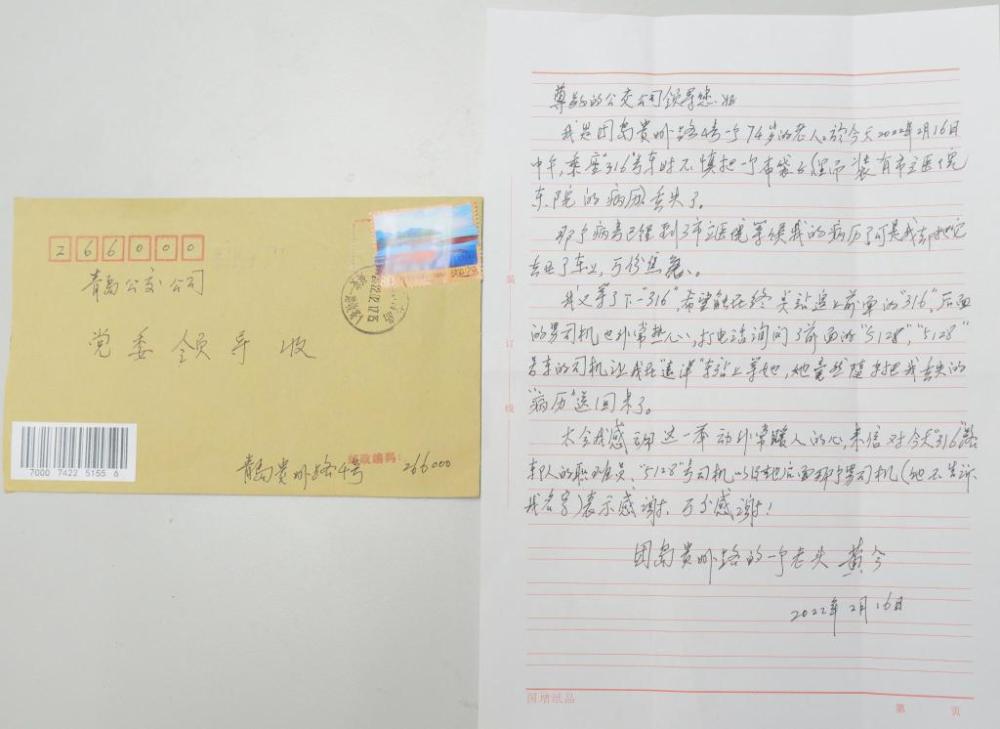 266000
青岛公交公司
党委领导收
7000 7422 5155 6
邮政编码：
青岛贵州路4号 266000
尊敬的公交公司领导您好
我是团岛贵州路4号一个74岁的老人。於今天2022年2月16日
中午，乘座"316"号车时不慎把一个布袋子(里面装有市立医院
东院的病历)丢失了。
那个病者已经到了市立医院等候我的病历了可是我却把它
丢在了车上，万分焦急。
我又等了下一"316"，希望能在终点站追上前面的"316"，后面
的男司机也非常热心，打电话询问了前面的"5128"，"5128"
号车的司机让我在"天津"车站上等她，她竟然
"病历"送回来了。
太令我感动了这一举动非常暖人的心，来信对今天"316"路
车队的职雇员、"5128"号司机以及她后面那个男司机(他不告诉
我名字)表示感谢，万分感谢！
团岛贵州路的一个老头 黄今
2022年2月16日
装
订
线
国增纸品
第 页